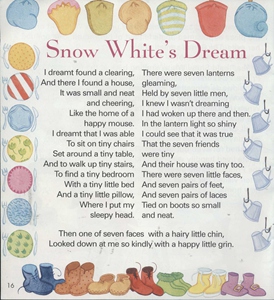 Snow White's Dream
I dreamt found a clearing,
And there I found a house,
It was small and neat
and cheering,
Like the home of a
happy mouse.
I dreamt that I was able
To sit on tiny chairs
Set around a tiny table,
And to walk up tiny stairs,
To find a tiny bedroom
With a tiny little bed
And a tiny little pillow,
Where I put my
sleepy head.
There were seven lanterns
gleaming,
Held by seven little men,
I knew I wasn't dreaming
I had woken up there and then.
In the lantern light so shiny
I could see that it was true
That the seven friends
were tiny
And their house was tiny too.
There were seven little faces,
And seven pairs of feet,
And seven pairs of laces
Tied on boots so small
and neat.
Then one of seven faces with a hairy little chin,
Looked down at me so kindly with a happy little grin.
16